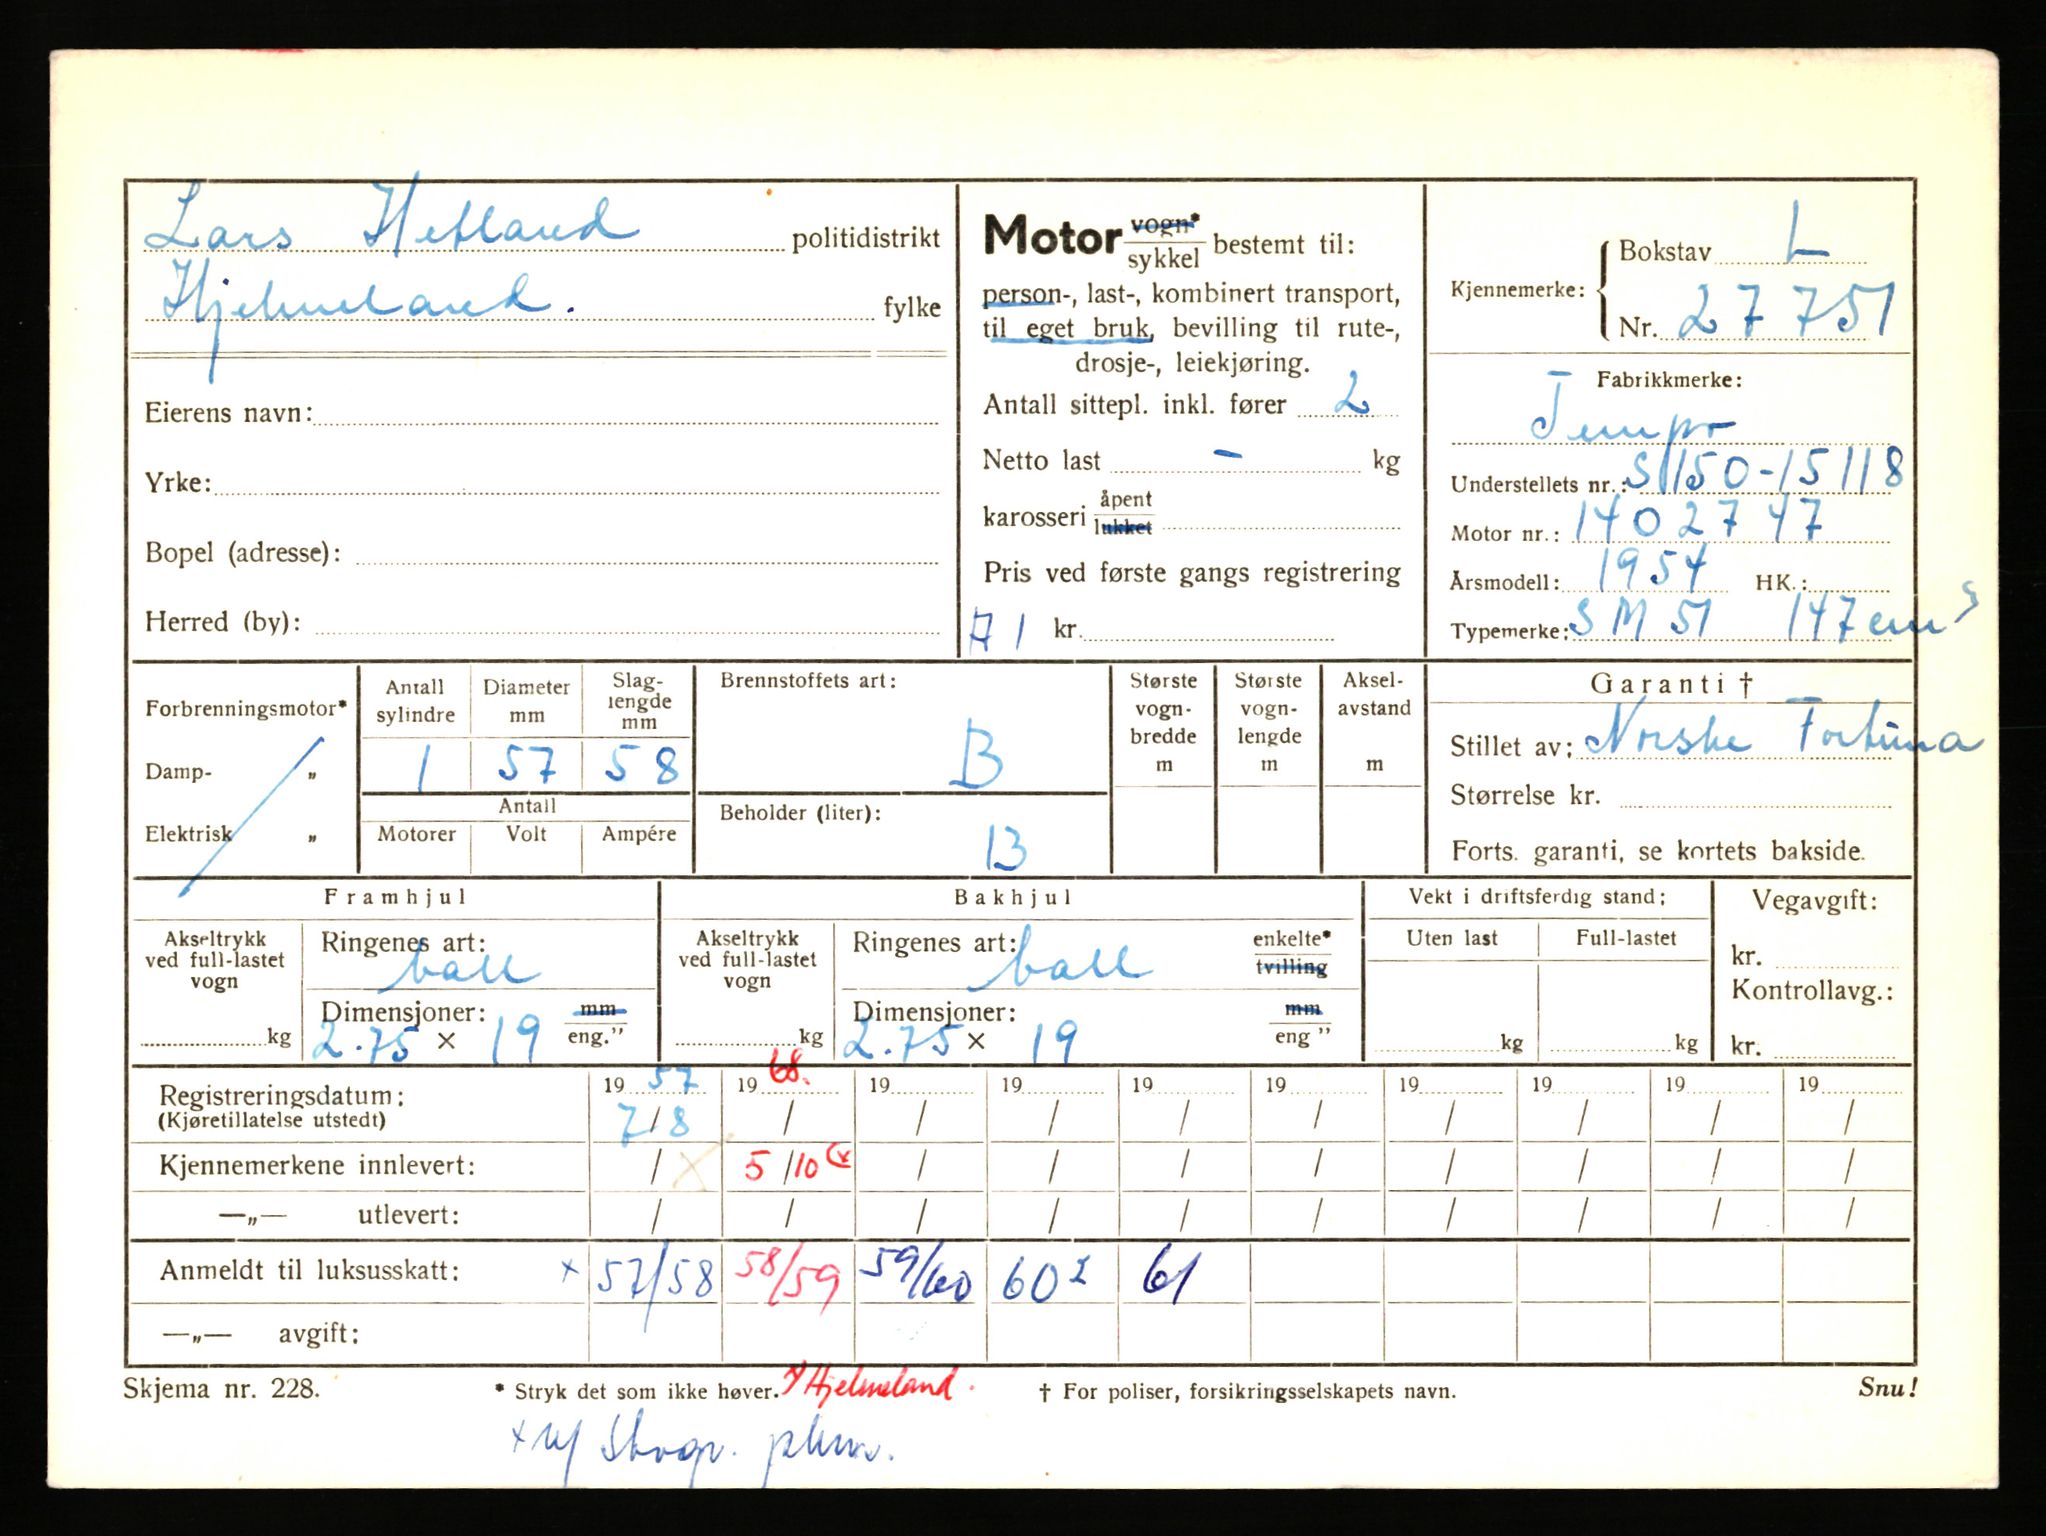 Lars Hetland politidistrikt
Hjelmeland. fylke
Eierens navn:
Yrke:
Bopel (adresse):
Herred (by):
Motor vogn* sykkel bestemt til:
person-, last-, kombinert transport,
til eget bruk, bevilling til rute-,
drosje-, leiekjøring.
Antall sittepl. inkl. fører 2
Netto last - kg
karosseri åpent lukket
Pris ved første gangs registrering
A1 kr.
Kjennemerke: Bokstav L
Nr. 27751
Fabrikkmerke:
Tempo
Understellets nr.: S 150-15118
Motor nr.: 1402747
Årsmodell: 1954 HK.:
Typemerke: SM 51 147 cm³
Forbrenningsmotor*
Damp- „
Elektrisk „
Antall sylindre 1
Diameter mm 57
Slag-lengde mm 58
Antall
Motorer Volt Ampére
Brennstoffets art:
B
Beholder (liter):
13
Største vogn-bredde m
Største vogn-lengde m
Aksel-avstand m
Garanti †
Stillet av: Norske Fortuna
Størrelse kr.
Forts. garanti, se kortets bakside.
Framhjul
Akseltrykk ved full-lastet vogn
kg
Ringenes art: ball
Dimensjoner: mm
2.75 × 19 eng.”
Bakhjul
Akseltrykk ved full-lastet vogn
kg
Ringenes art: ball enkelte* tvilling
Dimensjoner: mm
2.75 × 19 eng ”
Vekt i driftsferdig stand:
Uten last Full-lastet
kg kg
Vegavgift:
kr.
Kontrollavg.:
kr.
Registreringsdatum: 19 57 19 68. 19 19 19 19 19 19 19 19
(Kjøretillatelse utstedt) 7/8 / / / / / / / / /
Kjennemerkene innlevert: / X 5/10 (x / / / / / / / /
—„— utlevert: / / / / / / / / / /
Anmeldt til luksusskatt: x 57/58 58/59 59/60 60² 61
—„— avgift:
Skjema nr. 228. * Stryk det som ikke høver. x) Hjelmeland. † For poliser, forsikringsselskapets navn. Snu!